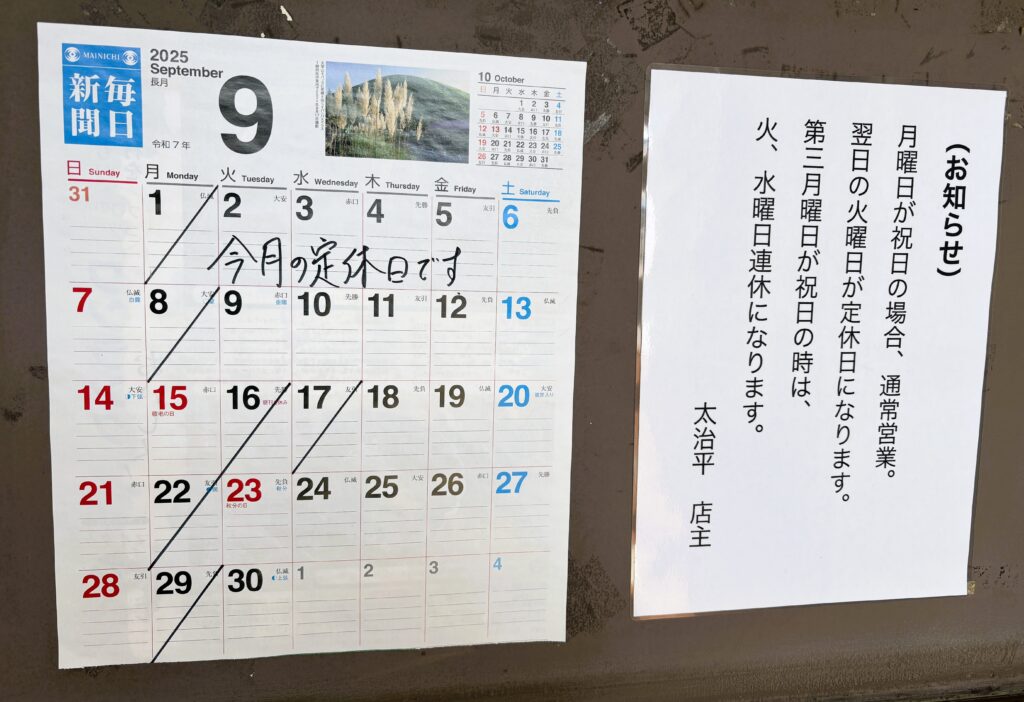 MAINICHI
毎日
新聞
2025
September
長月
9
令和7年
10 October
日 月 火 水 木 金 土
1 2 3 4
5 6 7 8 9 10 11
12 13 14 15 16 17 18
19 20 21 22 23 24 25
26 27 28 29 30 31
日 Sunday 月 Monday 火 Tuesday 水 Wednesday 木 Thursday 金 Friday 土 Saturday
31 1 2 3 4 5 6
仏滅 大安 赤口 先勝 友引 先負
今月の定休日です
7 8 9 10 11 12 13
仏滅 大安 赤口 先勝 友引 先負 仏滅
白露
14 15 16 17 18 19 20
大安 赤口 先勝 友引 先負 仏滅 大安
下弦 敬老の日 夕刊休み 彼岸入り
21 22 23 24 25 26 27
赤口 友引 先負 仏滅 大安 赤口 先勝
秋分
秋分の日
28 29 30 1 2 3 4
友引 先負 仏滅
上弦
(お知らせ)
月曜日が祝日の場合、通常営業。
翌日の火曜日が定休日になります。
第三月曜日が祝日の時は、
火、水曜日連休になります。
太治平 店主